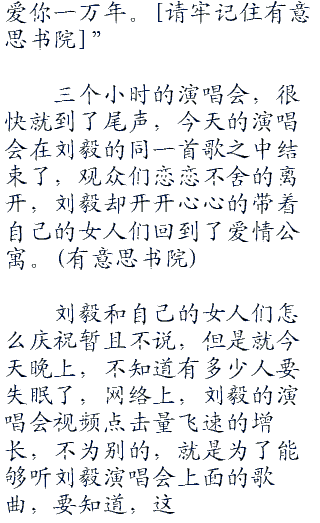 爱你一万年。[请牢记住有意
思书院]”
三个小时的演唱会，很
快就到了尾声，今天的演唱
会在刘毅的同一首歌之中结
束了，观众们恋恋不舍的离
开，刘毅却开开心心的带着
自己的女人们回到了爱情公
寓。(有意思书院)
刘毅和自己的女人们怎
么庆祝暂且不说，但是就今
天晚上，不知道有多少人要
失眠了，网络上，刘毅的演
唱会视频点击量飞速的增
长，不为别的，就是为了能
够听刘毅演唱会上面的歌
曲，要知道，这